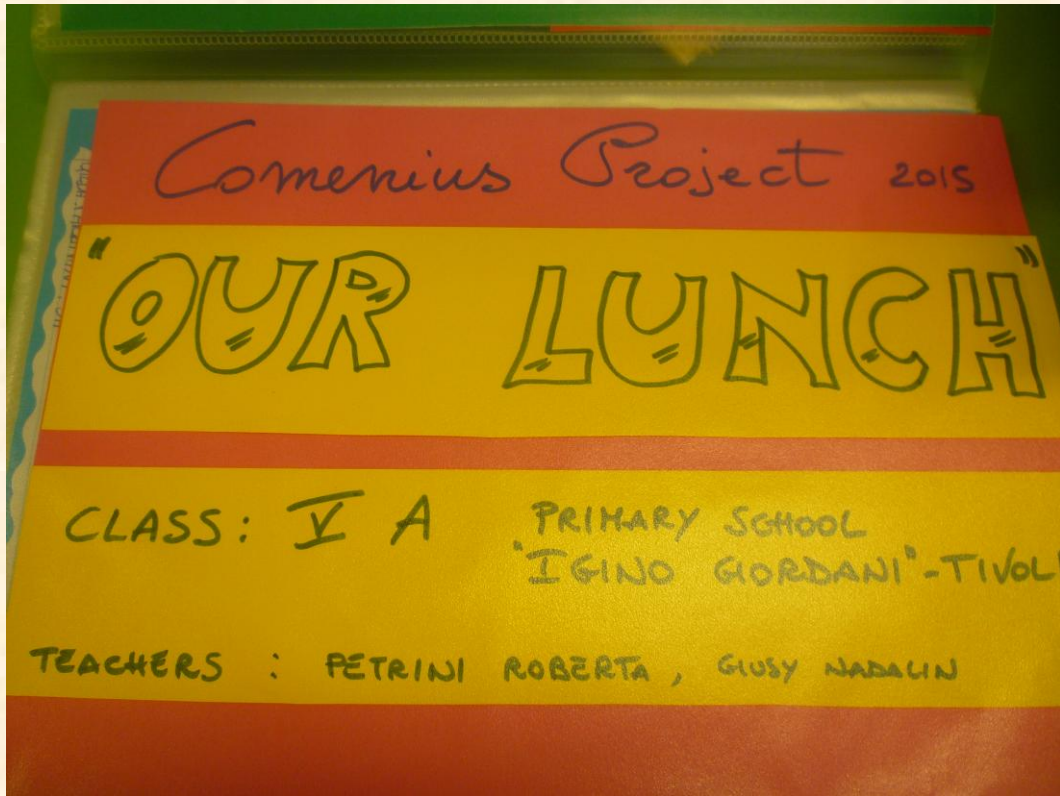 Comenius Project 2015
"OUR LUNCH"
CLASS: V A
PRIMARY SCHOOL
"IGINO GIORDANI"-TIVOLI
TEACHERS : PETRINI ROBERTA, GIUSY NADALIN